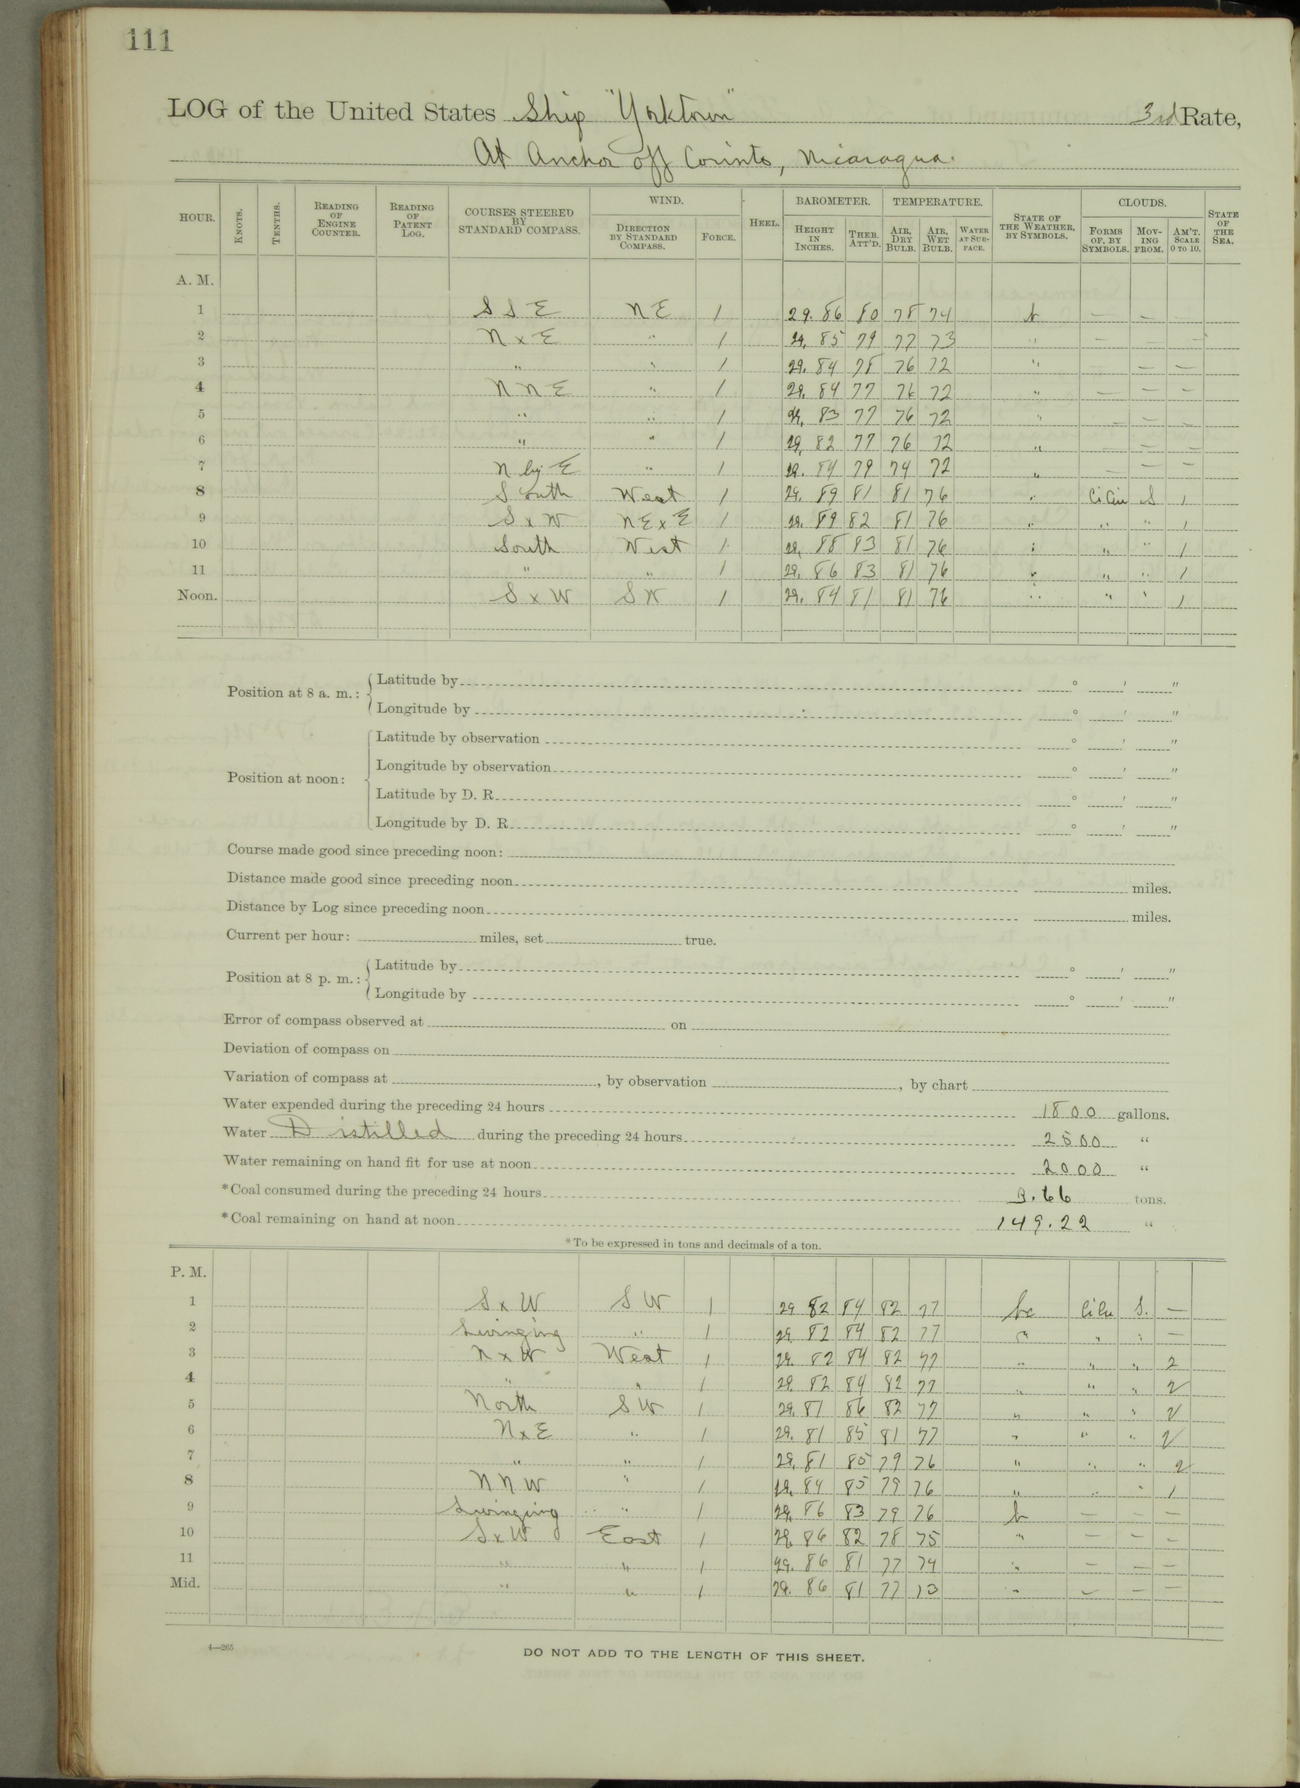 111
LOG of the United States Ship "Yorktown" 3rd Rate,
At Anchor off Corinto, Nicaragua.
HOUR. KNOTS. TENTHS. READING OF ENGINE COUNTER. READING OF PATENT LOG. COURSES STEERED BY STANDARD COMPASS. WIND. DIRECTION BY STANDARD COMPASS. FORCE. HEEL. BAROMETER. HEIGHT IN INCHES. THER. ATT'D. TEMPERATURE. AIR, DRY BULB. AIR, WET BULB. WATER AT SURFACE. STATE OF THE WEATHER, BY SYMBOLS. CLOUDS. FORMS OF, BY SYMBOLS. MOVING FROM. AM'T. SCALE 0 TO 10. STATE OF THE SEA.
A. M.
1 S S E N E 1 29.86 80 78 74 b — — —
2 N x E " 1 29.85 79 77 73 " — — —
3 " " 1 29.84 78 76 72 " — —
4 N N E " 1 29.84 77 76 72 " — — —
5 " " 1 29.83 77 76 72 " — — —
6 " " 1 29.82 77 76 72 " — — —
7 N by E " 1 29.84 79 74 72 " — — —
8 South West 1 29.89 81 81 76 " CiCu S 1
9 S x W NE x E 1 29.89 82 81 76 " " " 1
10 South West 1 29.88 83 81 76 " " " 1
11 " " 1 29.86 83 81 76 " " " 1
Noon. S x W SW 1 29.84 81 81 76 " " " 1
Position at 8 a. m.: Latitude by ° ' "
Longitude by ° ' "
Position at noon: Latitude by observation ° ' "
Longitude by observation ° ' "
Latitude by D. R. ° ' "
Longitude by D. R. ° ' "
Course made good since preceding noon:
Distance made good since preceding noon miles.
Distance by Log since preceding noon miles.
Current per hour: miles, set true.
Position at 8 p. m.: Latitude by ° ' "
Longitude by ° ' "
Error of compass observed at on
Deviation of compass on
Variation of compass at , by observation , by chart
Water expended during the preceding 24 hours 1800 gallons.
Water Distilled during the preceding 24 hours 2500 "
Water remaining on hand fit for use at noon 2000 "
*Coal consumed during the preceding 24 hours 3.66 tons.
*Coal remaining on hand at noon 149.22 "
*To be expressed in tons and decimals of a ton.
P. M.
1 S x W S W 1 29 82 84 82 77 bc CiCu S. —
2 Swinging " 1 29.82 84 82 77 " " " —
3 N x W West 1 29.82 84 82 77 " " " 2
4 " " 1 29.82 84 82 77 " " " 2
5 North S W 1 29.81 86 82 77 " " " 2
6 N x E " 1 29.81 85 81 77 " " " 2
7 " " 1 29.81 85 79 76 " " " 2
8 N N W " 1 29.84 85 79 76 " " " 1
9 Swinging " 1 29.86 83 79 76 b — — —
10 S x W East 1 29.86 82 78 75 " — — —
11 " " 1 29.86 81 77 74 " — — —
Mid. " " 1 29.86 81 77 73 " — — —
4—265
DO NOT ADD TO THE LENGTH OF THIS SHEET.